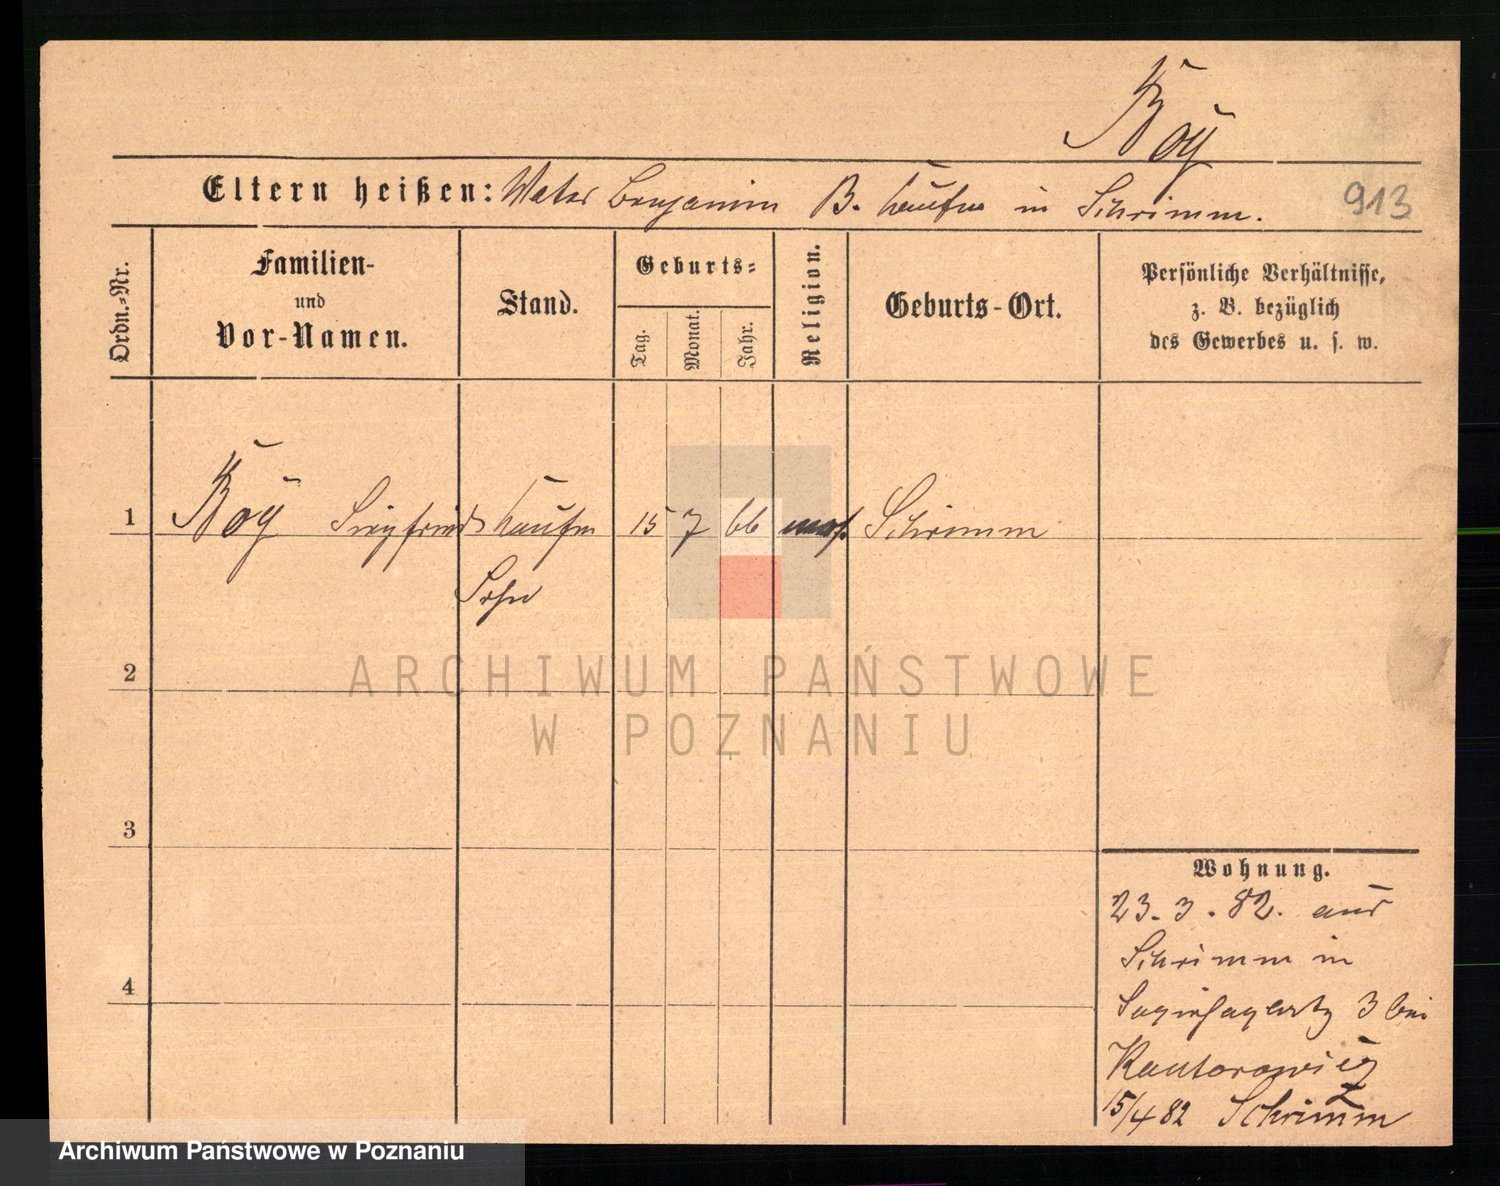 Roÿ
Eltern heißen: Vater Benjamin B. Kaufm in Schrimm.
913
Ordn.-Nr.
Familien-
und
Vor-Namen.
Stand.
Geburts-
Tag.
Monat.
Jahr.
Religion.
Geburts-Ort.
Persönliche Verhältnisse,
z. B. bezüglich
des Gewerbes u. s. w.
1 Roÿ Siegfried Kaufm 15 7 66 mos. Schrimm
Sohn
2
ARCHIWUM PAŃSTWOWE
W POZNANIU
3
4
Wohnung.
23.3.82. aus
Schrimm in
Sapiehaplatz 3 bei
Kantorowicz
15/4 82 Schrimm
Archiwum Państwowe w Poznaniu